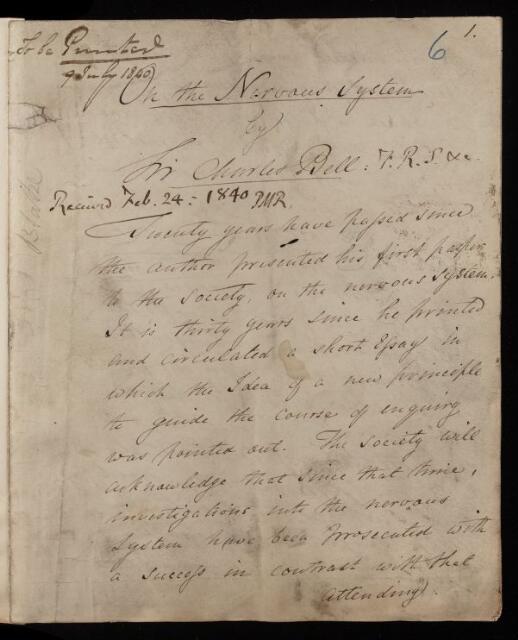 To be Printed
9 July 1840
6
1.
On the Nervous System
by
Sir Charles Bell. F.R.S. &c
Received Feb. 24 = 1840 PMR.
Twenty years have passed since
the author presented his first paper
to the Society, on the nervous system.
It is thirty years since he printed
and circulated a short Essay in
which the Idea of a new principle
to guide the course of enquiry
was pointed out. The society will
acknowledge that since that time,
investigations into the nervous
System have been prosecuted with
a success in contrast with that
attending